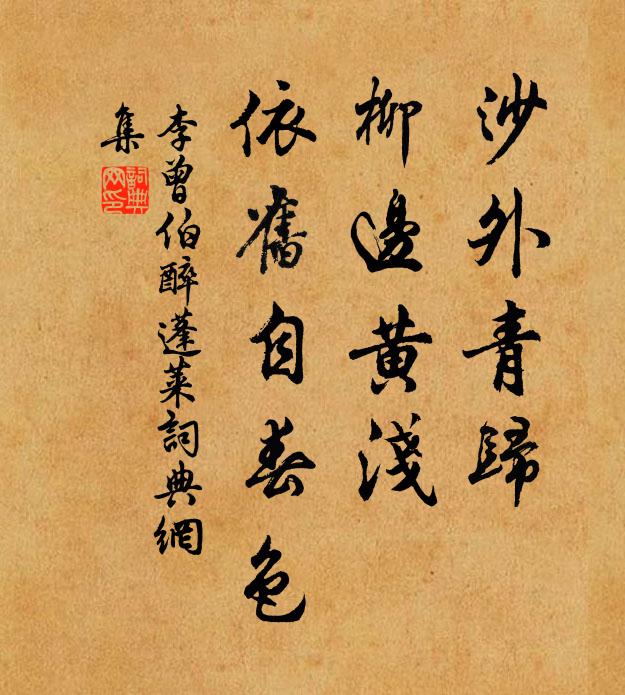 沙外青歸
柳邊黃淺
依舊自春色
李曾伯醉蓬萊詞典網
集
詞典
网印